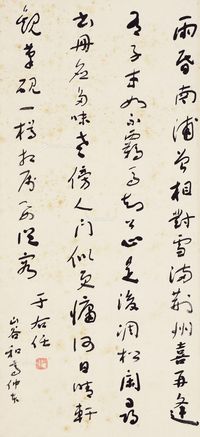 雨昏南浦曾相對雪滿荊州喜再逢
有子才如不羈馬知公心是後凋松閑尋
書冊應多味老傍人門似更慵何日晴軒
觀筆硯一樽相屬要從容
于右任
山谷和高仲本